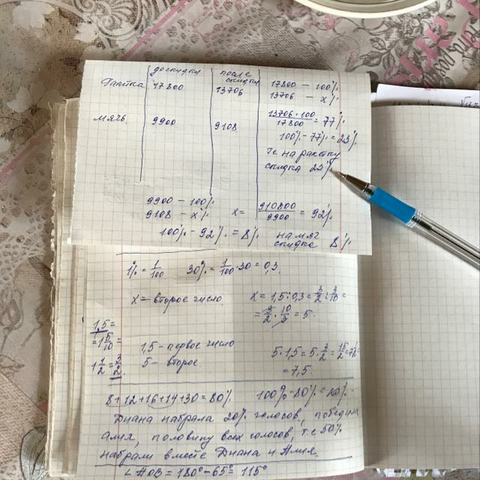 до скидки после скидки
Ракетка 17800 13706 17800 – 100%
13706 – x%
13706·100/17800 = 77%
100% - 77% = 23%
мячь 9900 9108
т.е на ракетку
скидка 23%
9900 – 100%
9108 – x% x = 910800/9900 = 92%
100% - 92% = 8% на мяч скидка 8%
1% = 1/100 30% = 1/100·30 = 0,3
x = второе число x = 1,5:0,3 = 3/2:3/10 =
= 3/2·10/3 = 5.
1,5 =
= 1 5/10 =
1 1/2 = 3/2
1,5 – первое число
5 – второе
5·1,5 = 5·3/2 = 15/2 =
= 7,5.
8+12+16+14+30 = 80% 100% - 80% = 20%
Диана набрала 20% голосов, победила
Алия, половину всех голосов, т.е 50%
набрали вместе Диана и Алия.
∠AOB = 180° – 65° = 115°